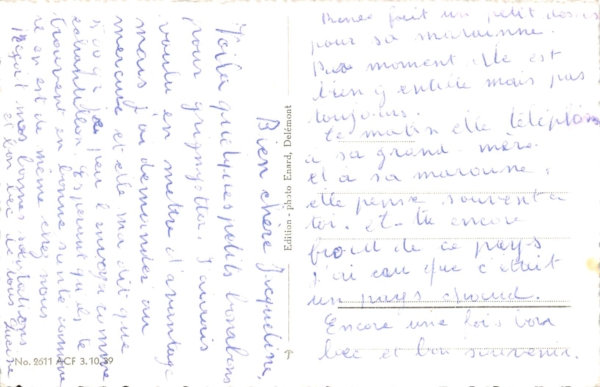 Bien chère Jacqueline,
Voilà quelques petits bonbons
pour grignotter, j'aurais
voulu en mettre d'avantage
mais j'ai demandé au
mercure et elle m'a dit que
si ça je peu l'envoyer comme
échantillon. Espérant qu'ils te
trouvent en bonne santé comme
il en est de même chez nous
Reçoit mes bonnes salutations
et bon bec de tous
Edition - photo Enard, Delémont
No. 2611 ACF 3.10.39
fait un petit
pour sa marraine.
Par moment elle est
bien gentille mais pas
toujours.
Le matin elle téléphone
à sa grand-mère
et à sa marraine,
elle pense souvent à
toi. Et-tu encore
froid de ce pays
j'ai cru que c'était
un pays chaud.
Encore une fois bon
bec et bon souvenir.